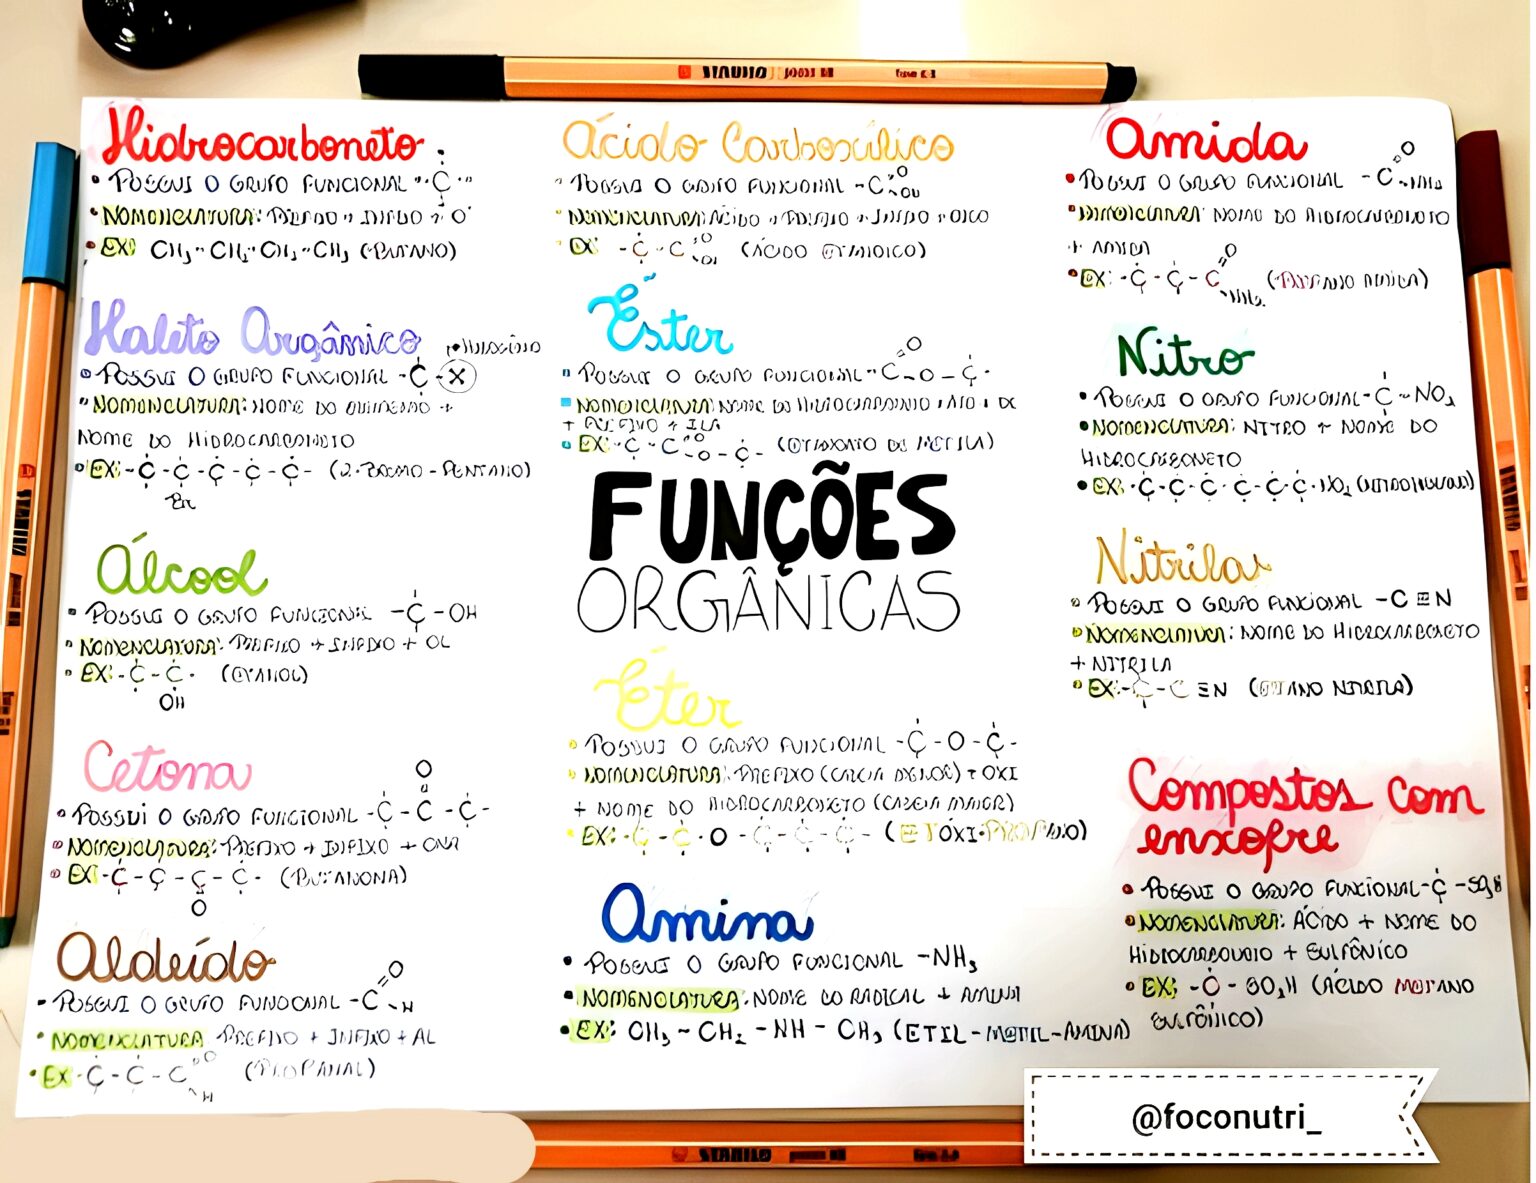 STABILO
Hidrocarboneto
• POSSUI O GRUPO FUNCIONAL -C-
• NOMENCLATURA: PREFIXO + INFIXO + O
• EX: CH₃ - CH₂ - CH₂ - CH₃ (BUTANO)
Haleto Orgânico
• POSSUI O GRUPO FUNCIONAL -C-X
• NOMENCLATURA: NOME DO +
NOME DO HIDROCARBONETO
• EX: -C-C-C-C-C- (2-BROMO-PENTANO)
Br
Álcool
• POSSUI O GRUPO FUNCIONAL -C-OH
• NOMENCLATURA: PREFIXO + INFIXO + OL
• EX: -C-C- (ETANOL)
OH
Cetona
O
• POSSUI O GRUPO FUNCIONAL -C-C-C-
• NOMENCLATURA: PREFIXO + INFIXO + ONA
• EX: -C-C-C-C- (BUTANONA)
O
Aldeído
O
• POSSUI O GRUPO FUNCIONAL -C-H
• NOMENCLATURA PREFIXO + INFIXO + AL
• EX -C-C-C (PROPANAL)
O
H
Ácido Carboxílico
• POSSUI O GRUPO FUNCIONAL -C
O
OH
• NOMENCLATURA: ÁCIDO + PREFIXO + INFIXO + OICO
• EX: -C-C (ÁCIDO ETANOICO)
O
OH
Éster
O
• POSSUI O GRUPO FUNCIONAL -C-O-C-
• NOMENCLATURA: NOME DO HIDROCARBONETO + ATO + DE
+ PREFIXO + ILA
• EX: -C-C-O-C- (ETANOATO DE METILA)
O
FUNÇÕES
ORGÂNICAS
Éter
• POSSUI O GRUPO FUNCIONAL -C-O-C-
• NOMENCLATURA: PREFIXO (CADEIA MENOR) + OXI
+ NOME DO HIDROCARBONETO (CADEIA MAIOR)
• EX: -C-C-O-C-C-C- (ETÓXI-PROPANO)
Amina
• POSSUI O GRUPO FUNCIONAL -NH₃
• NOMENCLATURA: NOME DO RADICAL + AMINA
• EX: CH₃ - CH₂ - NH - CH₃ (ETIL-METIL-AMINA)
Amida
O
• POSSUI O GRUPO FUNCIONAL -C-NH₂
• NOMENCLATURA: NOME DO HIDROCARBONETO
+ AMIDA
O
• EX: -C-C-C (PROPANO AMIDA)
NH₂
Nitro
• POSSUI O GRUPO FUNCIONAL -C-NO₂
• NOMENCLATURA: NITRO + NOME DO
HIDROCARBONETO
• EX: -C-C-C-C-C-C-NO₂ (NITROHEXANO)
Nitrilas
• POSSUI O GRUPO FUNCIONAL -C≡N
• NOMENCLATURA: NOME DO HIDROCARBONETO
+ NITRILA
• EX: -C-C≡N (ETANO NITRILA)
Compostos com
enxofre
• POSSUI O GRUPO FUNCIONAL -C-SO₃H
• NOMENCLATURA: ÁCIDO + NOME DO
HIDROCARBONETO + SULFÔNICO
• EX: -C-SO₃H (ÁCIDO METANO
SULFÔNICO)
@foconutri_
STABILO